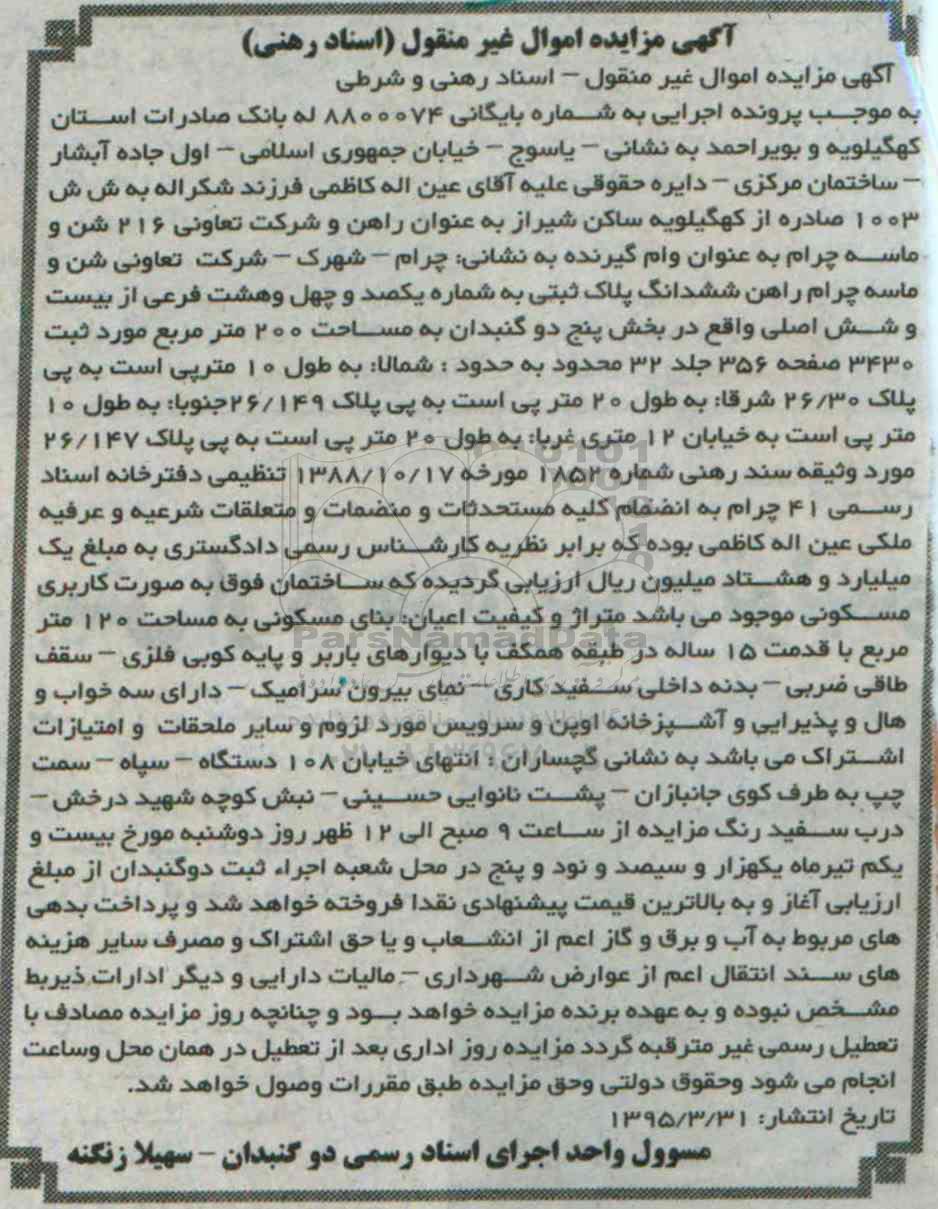 آگهی مزایده اموال غیر منقول (اسناد رهنی)
آگهی مزایده اموال غیر منقول – اسناد رهنی و شرطی
به موجب پرونده اجرایی به شماره بایگانی ۸۸۰۰۰۷۴ له بانک صادرات استان
کهگیلویه و بویراحمد به نشانی – یاسوج – خیابان جمهوری اسلامی – اول جاده آبشار
– ساختمان مرکزی – دایره حقوقی علیه آقای عین اله کاظمی فرزند شکراله به ش ش
۱۰۰۳ صادره از کهگیلویه ساکن شیراز به عنوان راهن و شرکت تعاونی ۲۱۶ شن و
ماسه چرام به عنوان وام گیرنده به نشانی: چرام – شهرک – شرکت تعاونی شن و
ماسه چرام راهن ششدانگ پلاک ثبتی به شماره یکصد و چهل وهشت فرعی از بیست
و شش اصلی واقع در بخش پنج دو گنبدان به مساحت ۲۰۰ متر مربع مورد ثبت
۳۴۳۰ صفحه ۳۵۶ جلد ۳۲ محدود به حدود : شمالا: به طول ۱۰ مترپی است به پی
پلاک ۲۶/۳۰ شرقا: به طول ۲۰ متر پی است به پی پلاک ۲۶/۱۴۹جنوبا: به طول ۱۰
متر پی است به خیابان ۱۲ متری غربا: به طول ۲۰ متر پی است به پی پلاک ۲۶/۱۴۷
مورد وثیقه سند رهنی شماره ۱۸۵۲ مورخه ۱۳۸۸/۱۰/۱۷ تنظیمی دفترخانه اسناد
رسمی ۴۱ چرام به انضمام کلیه مستحدثات و منضمات و متعلقات شرعیه و عرفیه
ملکی عین اله کاظمی بوده که برابر نظریه کارشناس رسمی دادگستری به مبلغ یک
میلیارد و هشتاد میلیون ریال ارزیابی گردیده که ساختمان فوق به صورت کاربری
مسکونی موجود می باشد متراژ و کیفیت اعیان: بنای مسکونی به مساحت ۱۲۰ متر
مربع با قدمت ۱۵ ساله در طبقه همکف با دیوارهای باربر و پایه کوبی فلزی – سقف
طاقی ضربی – بدنه داخلی سفید کاری – نمای بیرون سرامیک – دارای سه خواب و
هال و پذیرایی و آشپزخانه اوپن و سرویس مورد لزوم و سایر ملحقات و امتیازات
اشتراک می باشد به نشانی گچساران : انتهای خیابان ۱۰۸ دستگاه – سپاه – سمت
چپ به طرف کوی جانبازان – پشت نانوایی حسینی – نبش کوچه شهید درخش –
درب سفید رنگ مزایده از ساعت ۹ صبح الی ۱۲ ظهر روز دوشنبه مورخ بیست و
یکم تیرماه یکهزار و سیصد و نود و پنج در محل شعبه اجراء ثبت دوگنبدان از مبلغ
ارزیابی آغاز و به بالاترین قیمت پیشنهادی نقدا فروخته خواهد شد و پرداخت بدهی
های مربوط به آب و برق و گاز اعم از انشعاب و یا حق اشتراک و مصرف سایر هزینه
های سند انتقال اعم از عوارض شهرداری – مالیات دارایی و دیگر ادارات ذیربط
مشخص نبوده و به عهده برنده مزایده خواهد بود و چنانچه روز مزایده مصادف با
تعطیل رسمی غیر مترقبه گردد مزایده روز اداری بعد از تعطیل در همان محل وساعت
انجام می شود وحقوق دولتی وحق مزایده طبق مقررات وصول خواهد شد.
تاریخ انتشار: ۱۳۹۵/۳/۳۱
مسوول واحد اجرای اسناد رسمی دو گنبدان – سهیلا زنگنه
ParsNamadData